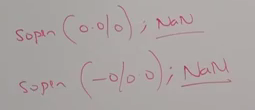 Sopen (0.0/0); NaN
Sopen (-0/0 0); NaN